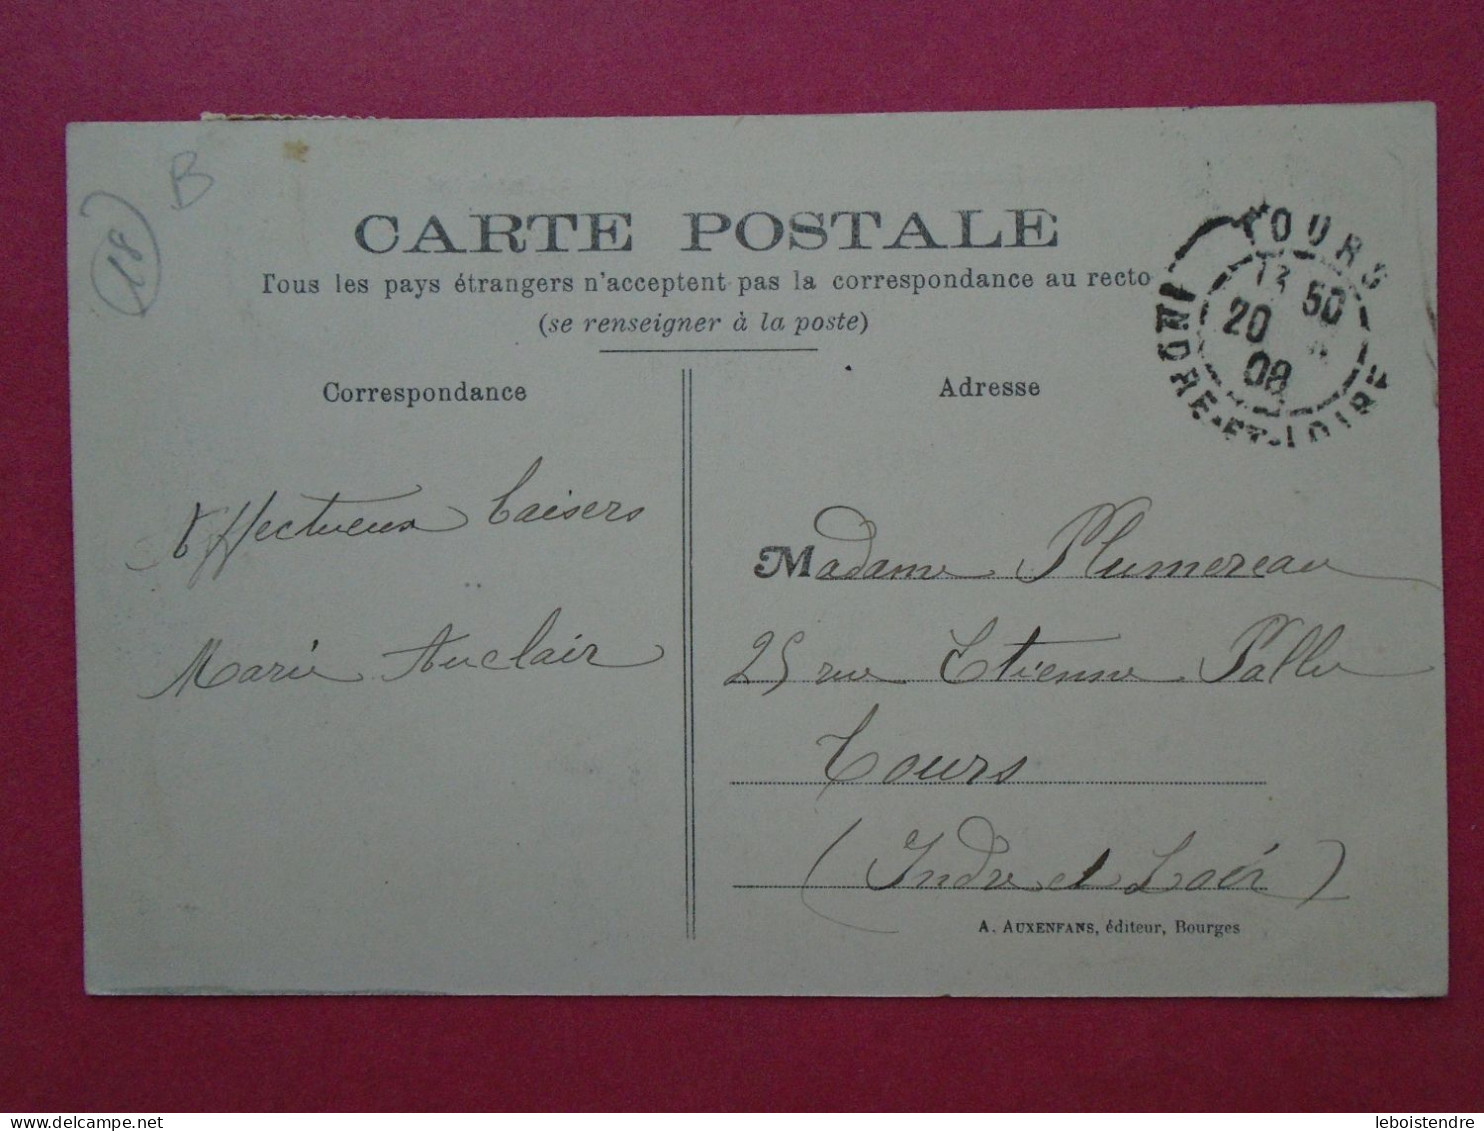 B
18
CARTE POSTALE
Tous les pays étrangers n'acceptent pas la correspondance au recto
(se renseigner à la poste)
TOURS
13 50
20
08
INDRE-ET-LOIRE
Correspondance
Affectueux baisers
Marie Auclair
Adresse
Madame Plumereau
25 rue Etienne Pallu
Tours
(Indre et Loir)
A. AUXENFANS, éditeur, Bourges
leboistendre